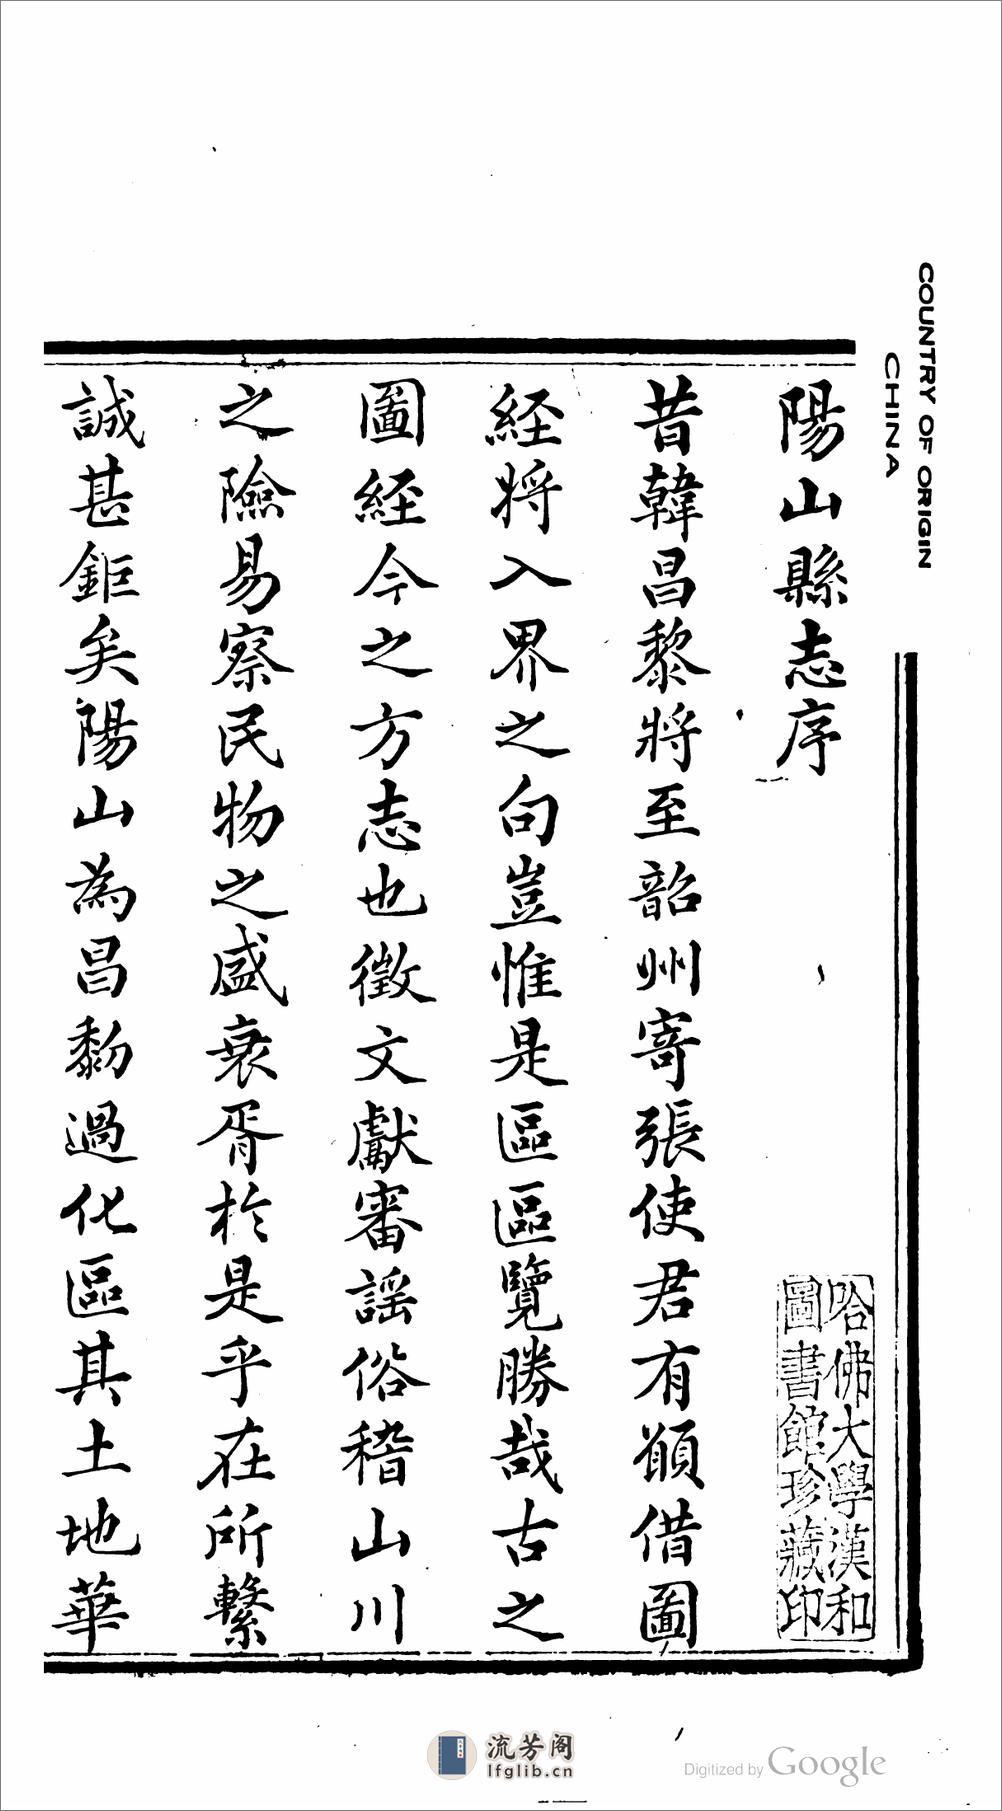 陽山縣志序
昔韓昌黎將至韶州寄張使君有願借圖
経將入界之句豈惟是區區覽勝哉古之
圖経今之方志也徵文獻審謡俗稽山川
之險易察民物之盛衰胥於是乎在所繫
誠甚鉅矣陽山為昌黎過化區其土地華
哈佛大學漢和
圖書館珍藏印
COUNTRY OF ORIGIN
CHINA
流芳阁
lfglib.cn
Digitized by Google